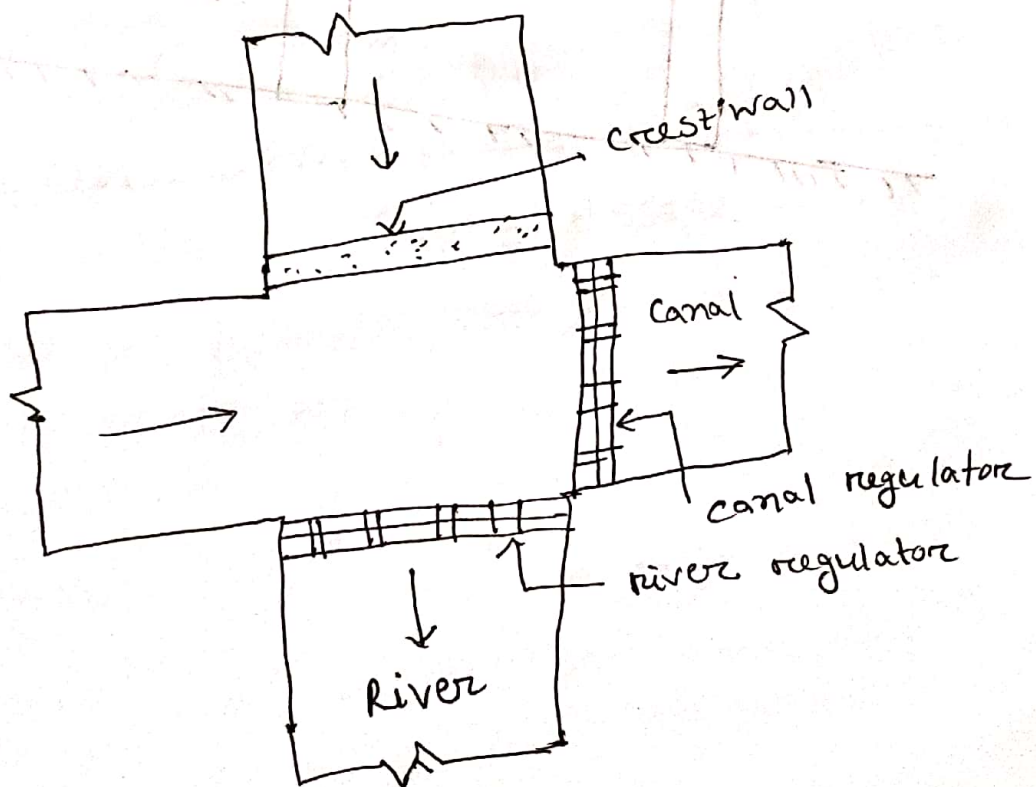 crest wall
canal
canal regulator
river regulator
River